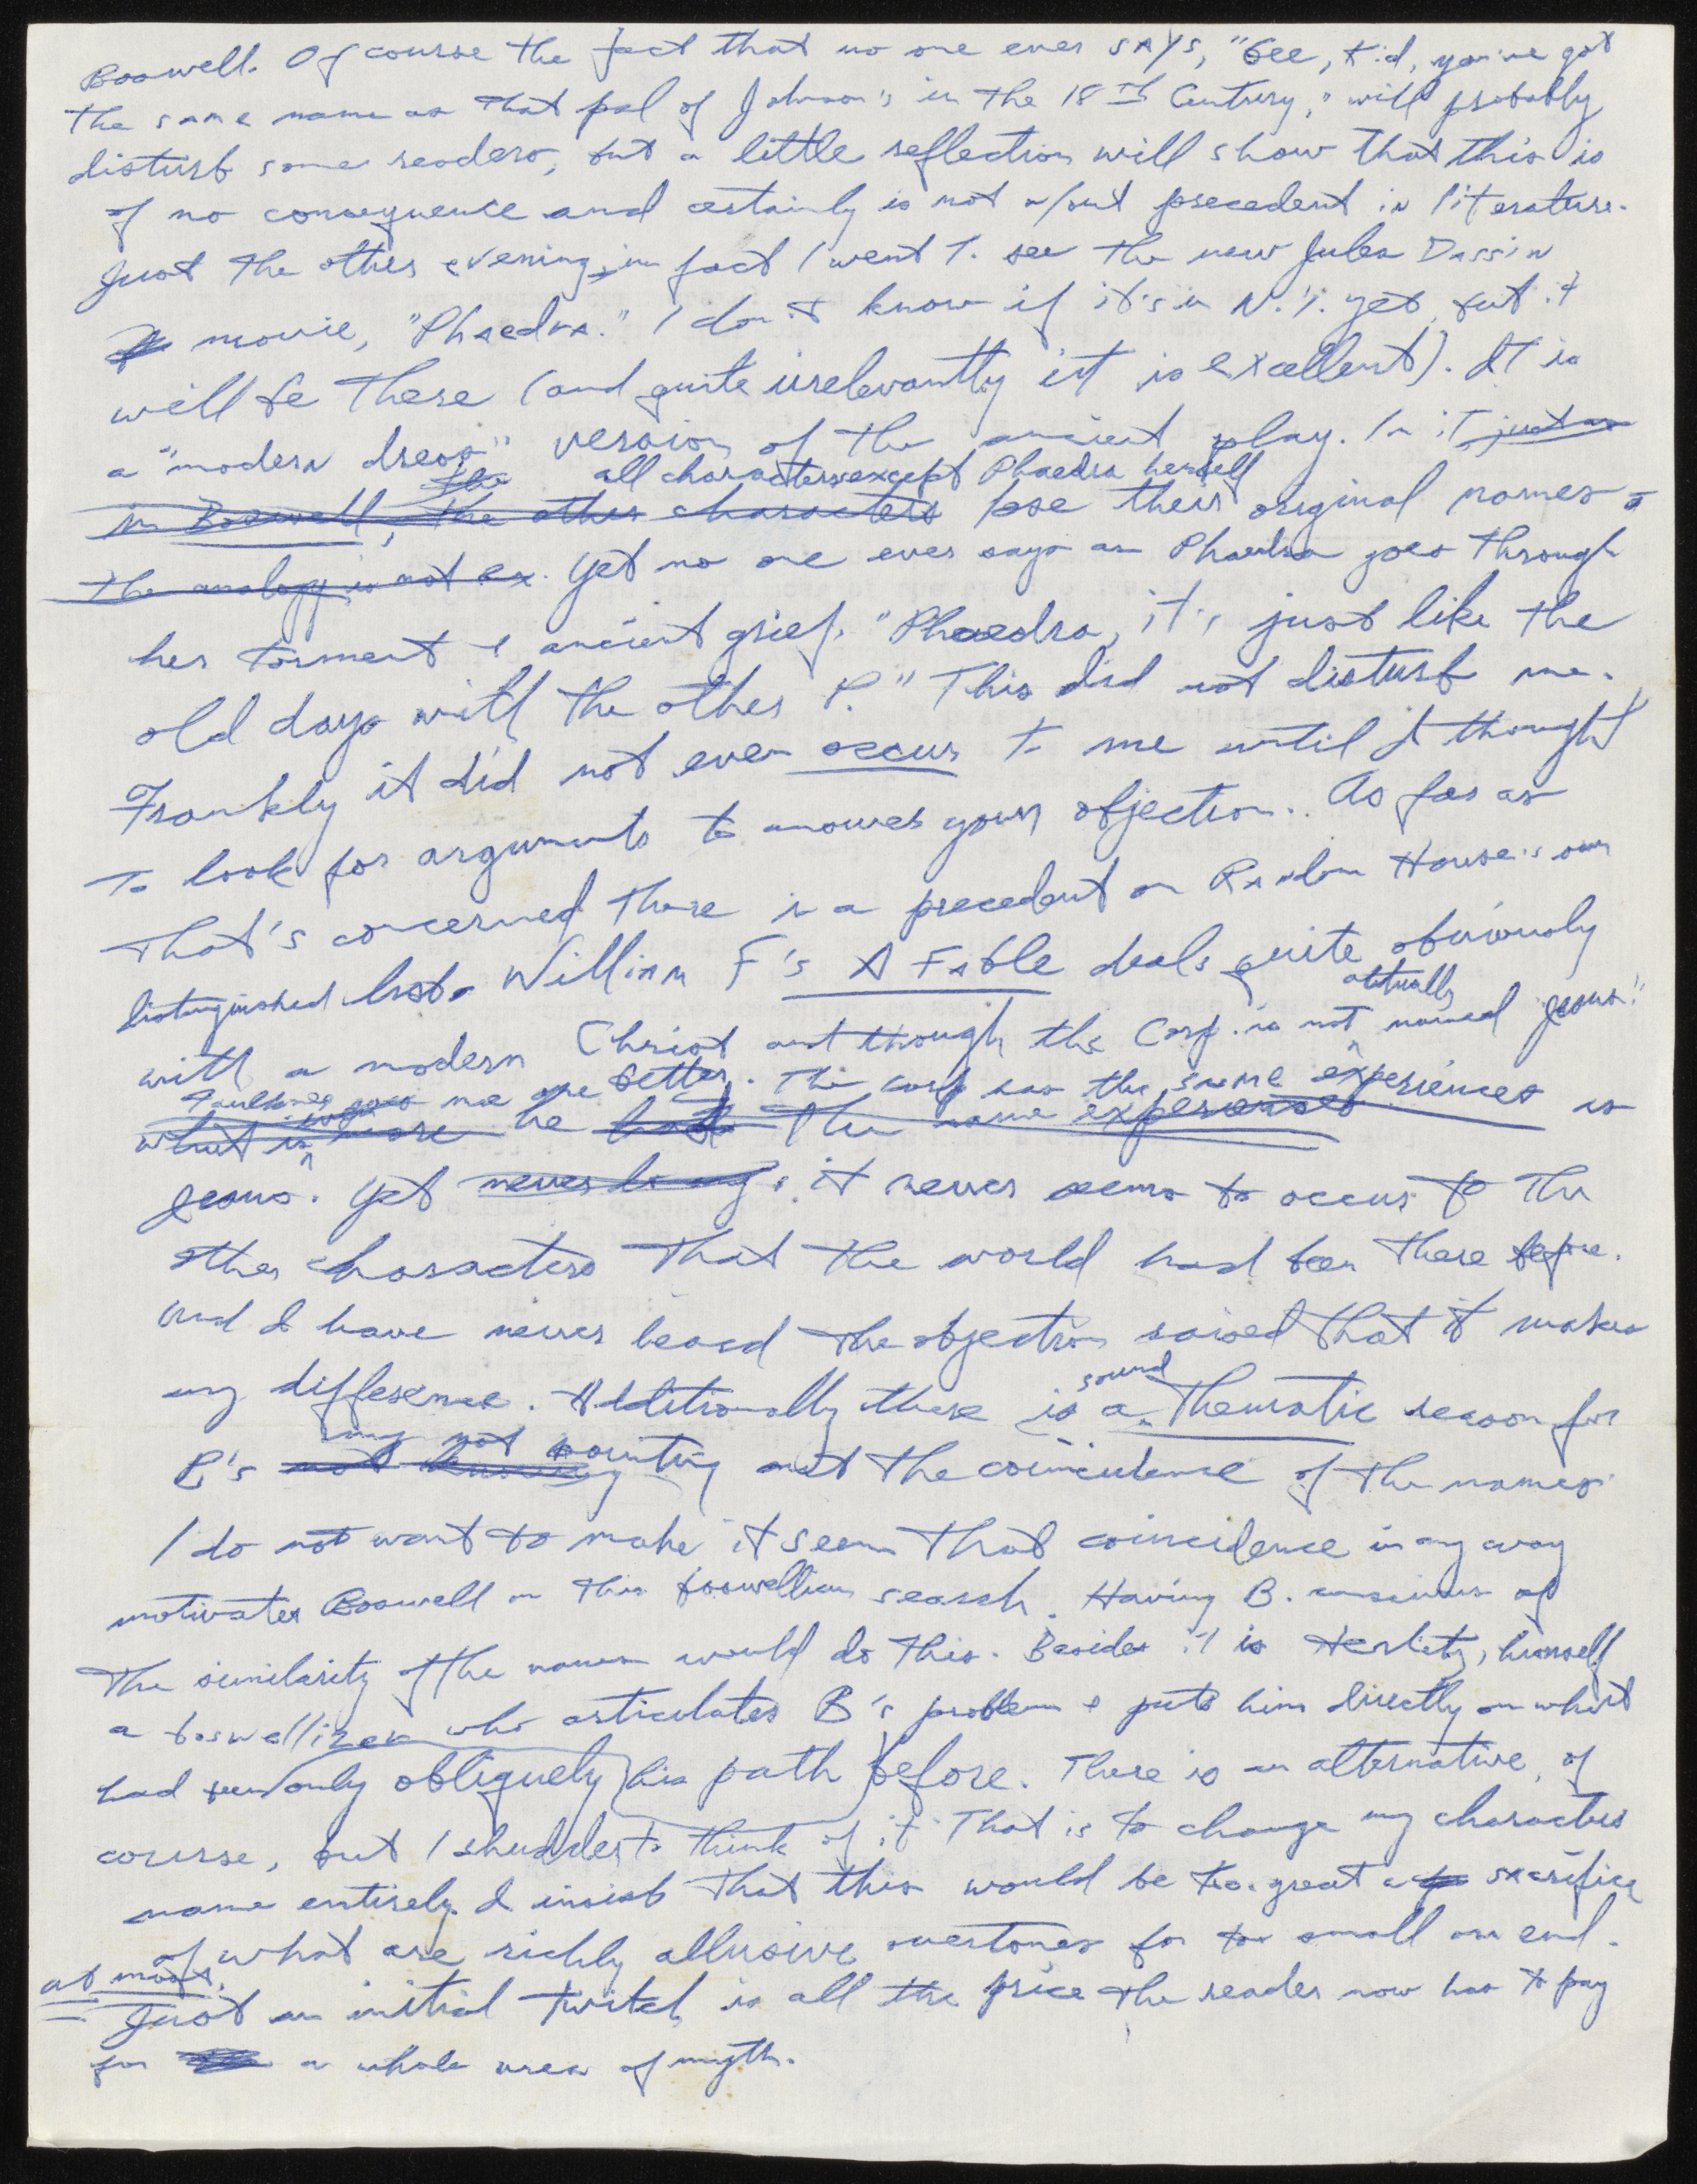 Boswell. Of course the fact that no one ever says, "Gee, kid, you've got
the same name as that pal of Johnson's in the 18th Century," will probably
disturb some readers, but a little reflection will show that this is
of no consequence and certainly is not w/out precedent in literature.
Just the other evening, in fact I went to see the new Jules Dassin
movie, "Phaedra." I don't know if it's in N.Y. yet, but it
will be there (and quite irrelevantly it is excellent). It is
a "modern dress" version of the ancient play. In it just as
the all characters except Phaedra herself
in Boswell, the other characters lose their original names.
the analogy is not ex. Yet no one ever says as Phaedra goes through
her torment & ancient grief, "Phaedra, it's just like the
old days with the other P." This did not disturb me.
Frankly it did not even occur to me until I thought
to look for arguments to answer your objection. As far as
that's concerned there is a precedent on Random House's own
distinguished list. William F's A Fable deals quite obviously
actually
with a modern Christ and though the Corp. is not named Jesus"
Faulkner goes me one better. The corp has the same experiences as
what is more he had the same experiences
Jesus. Yet it never seems to occur to the
other characters that the world had been there before.
And I have never heard the objection raised that it makes
any difference. Additionally there is a sound thematic reason for
my not pointing
B's not knowing out the coincidence of the names.
I do not want to make it seem that coincidence in any way
motivates Boswell in this boswellian search. Having B. conscious of
the similarity of the names would do this. Besides it is Herlitz, himself
a boswellizer who articulates B's problem & puts him directly on what
had been only obliquely his path before. There is an alternative, of
course, but I shudder to think of it. That is to change my characters
name entirely. I insist that this would be too great a sacrifice
of what are richly allusive overtones for too small an end.
at most,
Just an initial twitch is all the price the reader now has to pay
for a whole area of myth.